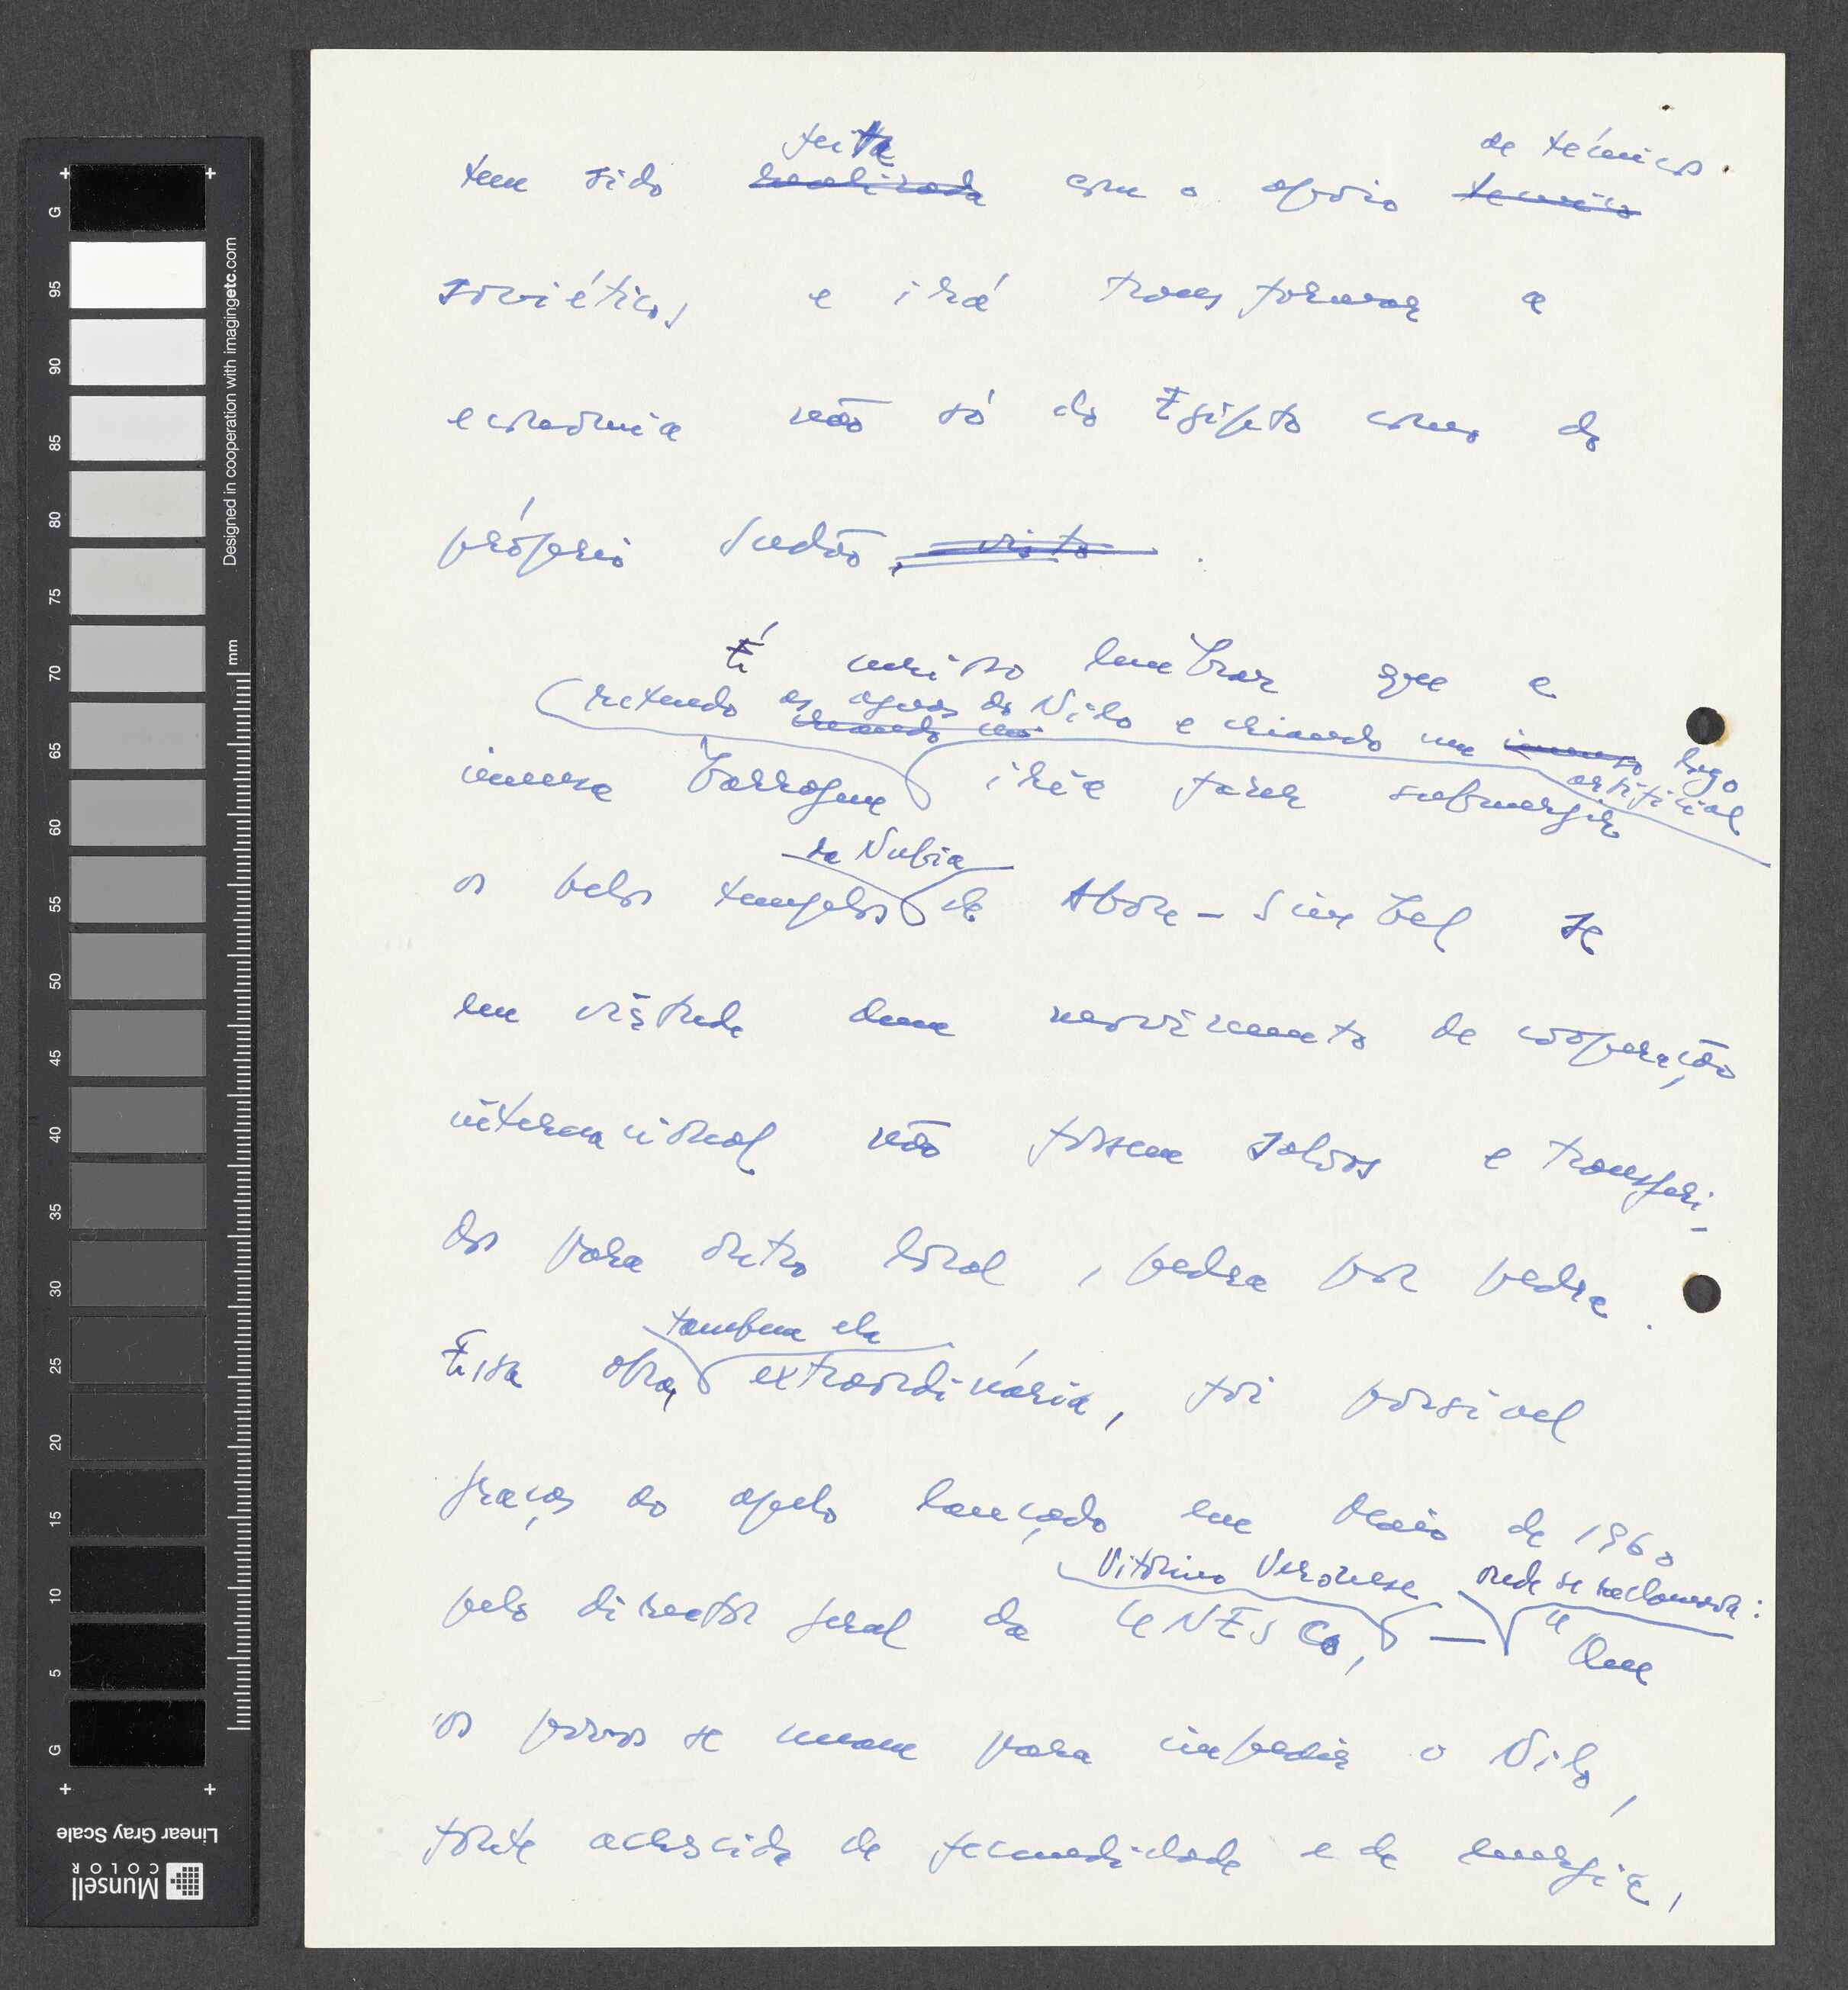 feita de técnicos
tem sido realizada com o apoio tecnico
soviéticos e irá transformar a
economia não só do Egipto como do
próprio Sudão, visto.
É curioso lembrar que a
(retendo as aguas do Nilo e criando um imenso lago
creando um artificial
imensa barragem irá fazer submergir
da Nubia
os belos templos de Abou-Simbel se
em virtude dum movimento de cooperação
internacional não fossem salvos e transferi-
dos para outro local, pedra por pedra.
tambem ela
Essa obra, extraordinária, foi possivel
graças ao apelo lançado em Maio de 1960
Vitorino Veronese onde se reclamava:
pelo director geral da UNESCO, — "Que
os povos se unam para impedir o Nilo,
fonte acrescida de fecundidade e de energia,
G
95
90
85
80
75
70
65
60
55
50
45
40
35
30
25
20
15
10
5
G
mm
Designed in cooperation with imagingetc.com
Linear Gray Scale
Munsell
COLOR